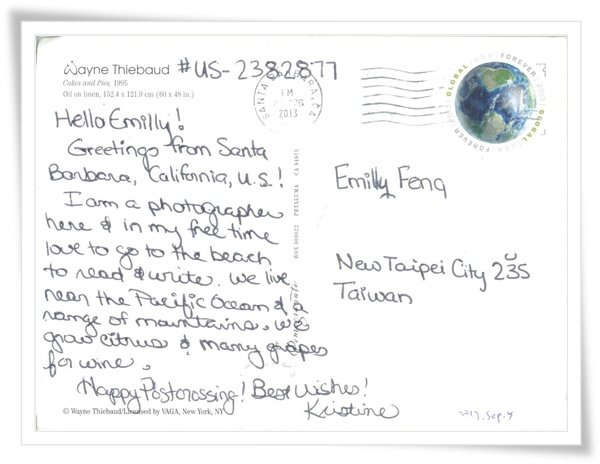 Wayne Thiebaud
Cakes and Pies, 1995
Oil on linen, 152.4 x 121.9 cm (60 x 48 in.)
#US-2382877
SANTA BARBARA, CA
PM
2013
GLOBAL USA FOREVER
Hello Emilly!
Greetings from Santa
Barbara, California, U.S.!
I am a photographer
here & in my free time
love to go to the beach
to read & write. We live
near the Pacific Ocean & a
range of mountains. We
grow citrus & many grapes
for wine.
Happy Postcrossing! Best Wishes!
Kristine
© Wayne Thiebaud/Licensed by VAGA, New York, NY
BOX 808022 PETALUMA CA 94975
Emilly Feng
New Taipei City 235
Taiwan
2013. Sep. 5